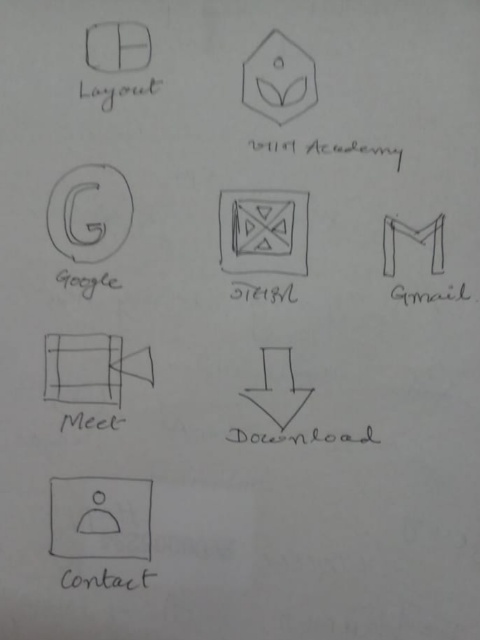 Layout
Academy
G
Google
Gmail
Meet
Download
Contact